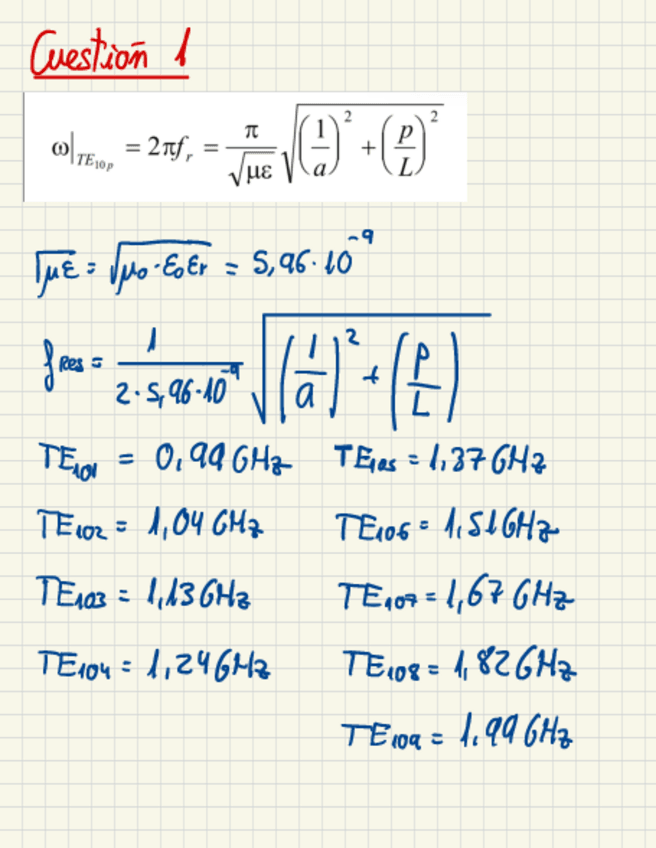 Cuestión 1
ω|TE₁₀ₚ = 2πfᵣ = π/√με √((1/a)² + (p/L)²)
√με = √μ₀·ε₀εr = 5,96·10⁻⁹
fRes = 1/(2·5,96·10⁻⁹) √((1/a)² + (P/L))
TE₁₀₁ = 0,99 GHz TE₁₀₅ = 1,37 GHz
TE₁₀₂ = 1,04 GHz TE₁₀₆ = 1,51 GHz
TE₁₀₃ = 1,13 GHz TE₁₀₇ = 1,67 GHz
TE₁₀₄ = 1,24 GHz TE₁₀₈ = 1,82 GHz
TE₁₀₉ = 1.99 GHz